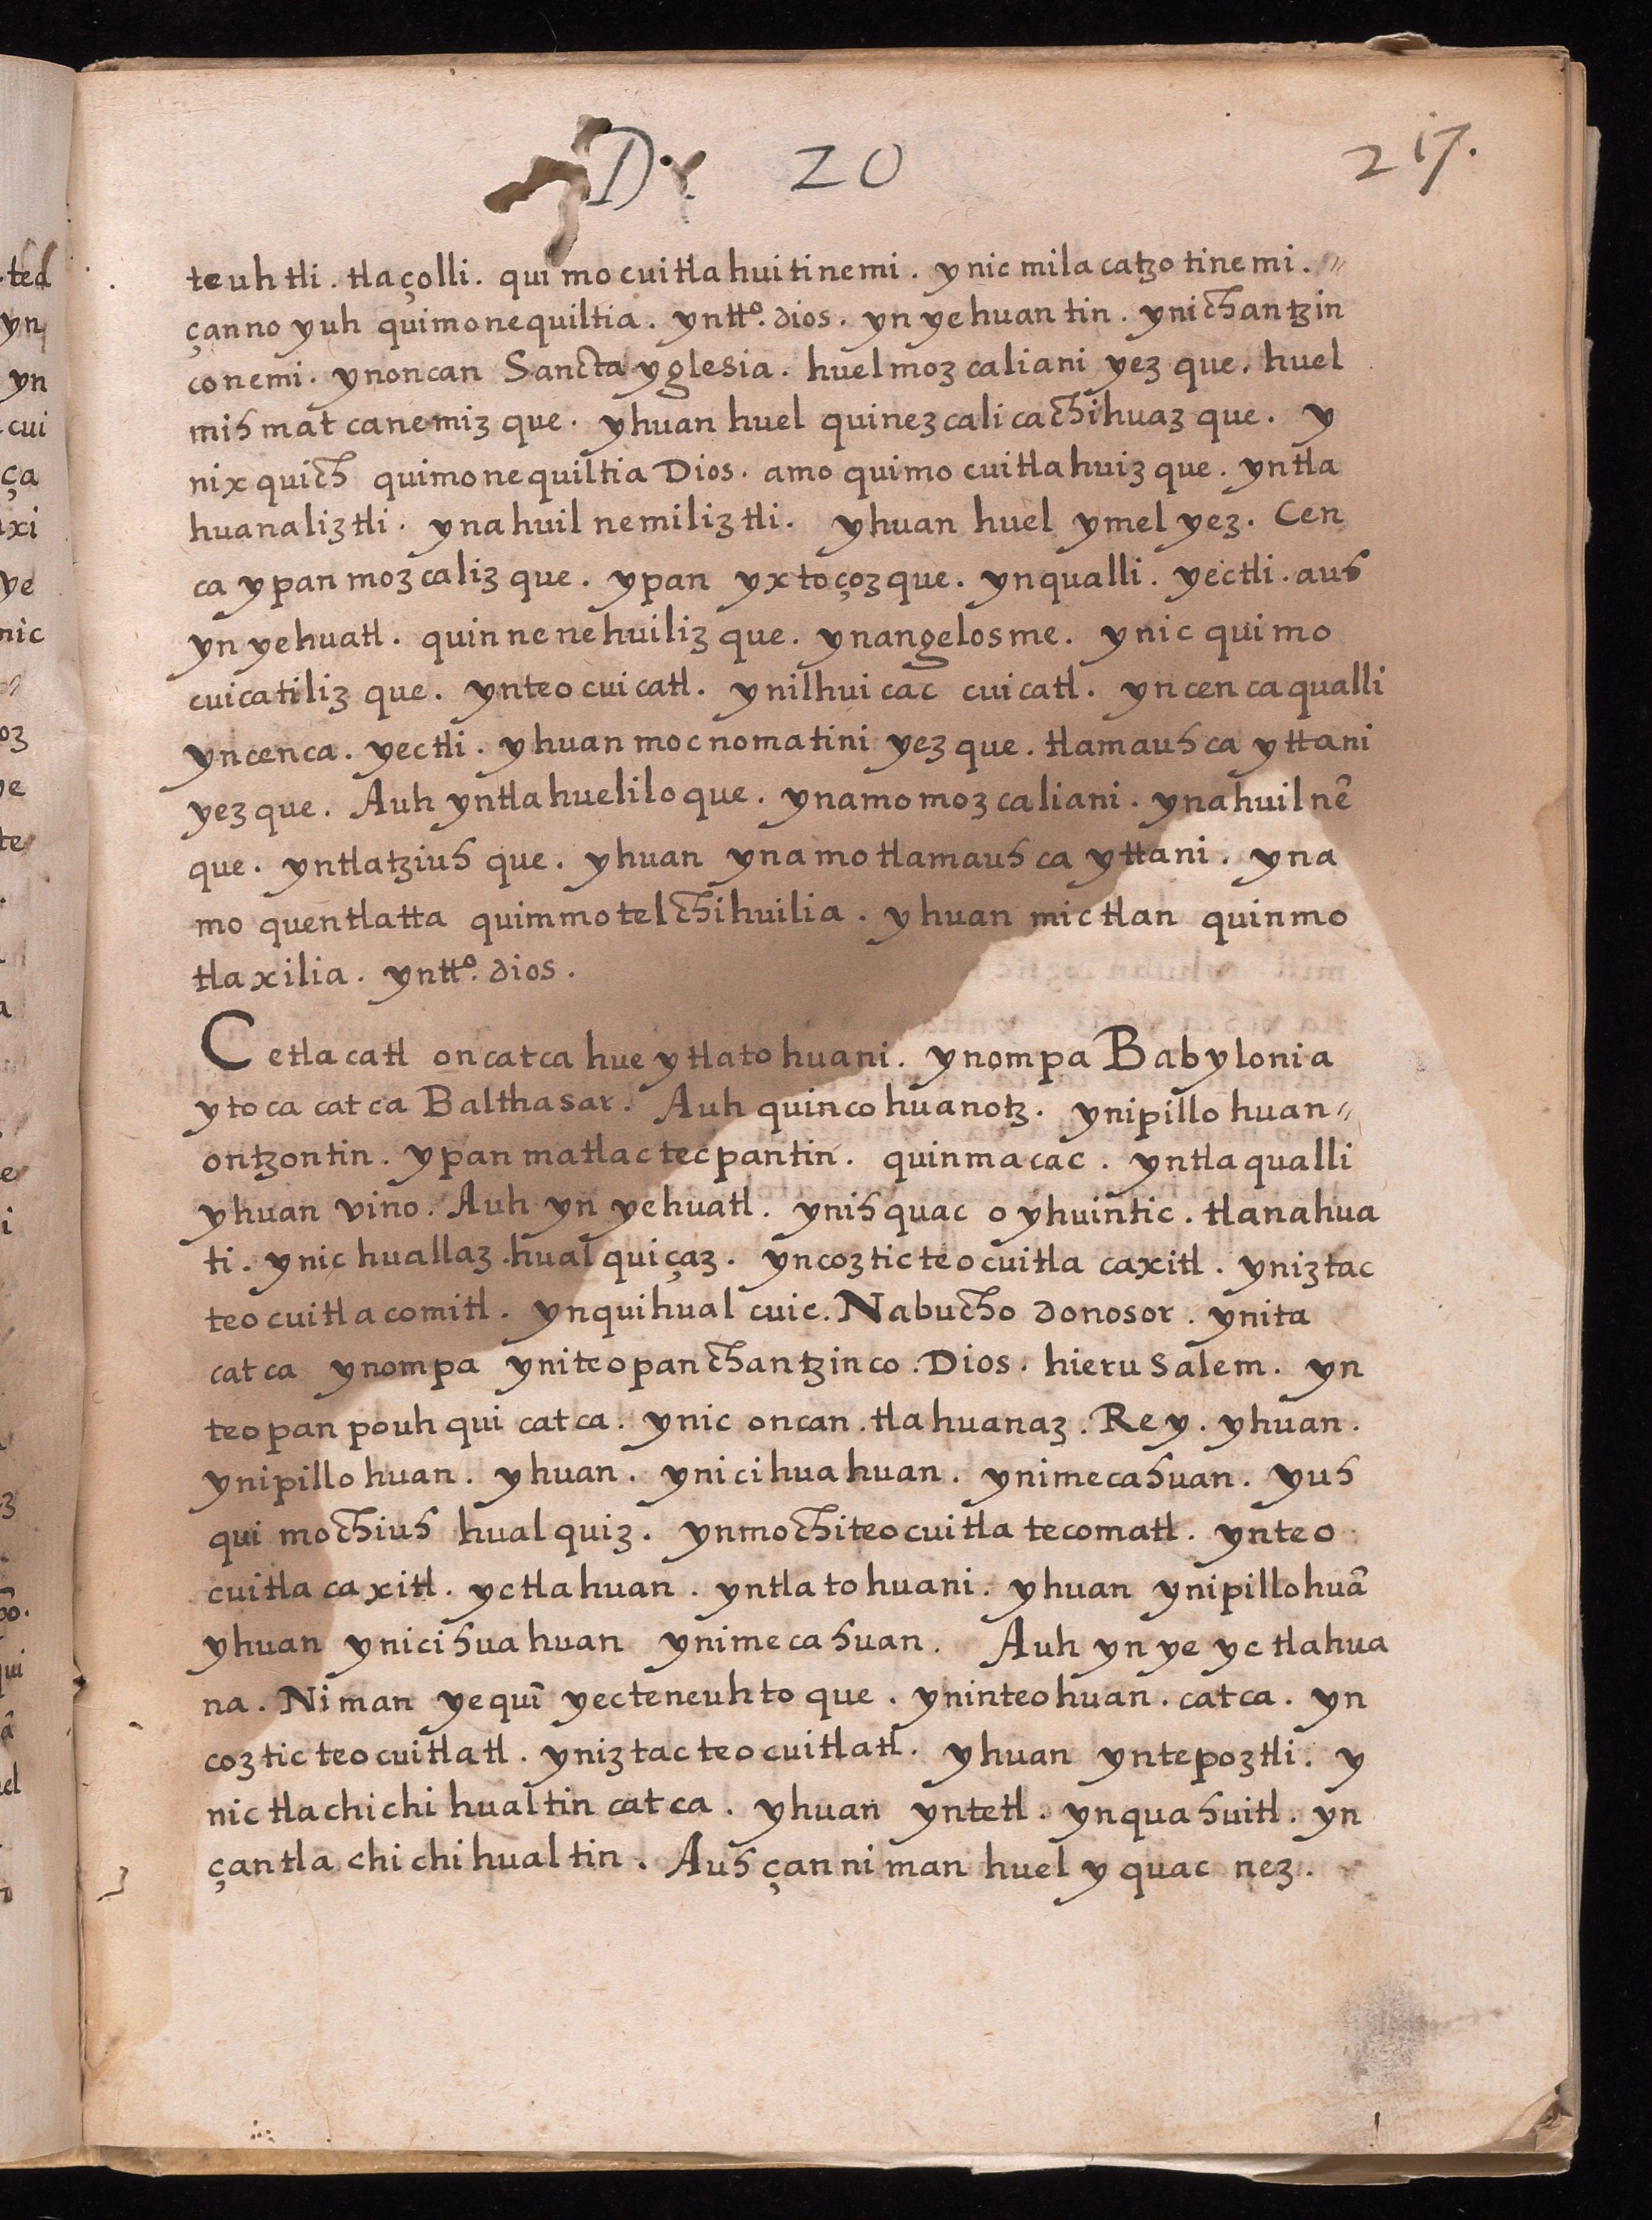 D. 20 217.
teuhtli. tlaçolli. quimocuitlahuitinemi. ynic milacatzotinemi. //
çanno yuh quimonequiltia. yntt.º dios. yn yehuantin. ynichantzin
conemi. ynoncan Sancta yglesia. huel mozcaliani yezque. huel
mihmatcanemizque. yhuan huel quinezcalicachihuazque. y
nixquich quimonequiltia Dios. amo quimocuitlahuizque. yntla
huanaliztli. ynahuilnemiliztli. yhuan huel ymel yez. Cen
ca ypan mozcalizque. ypan yxtoçozque. ynqualli. yectli. auh
yn yehuatl. quinnenehuilizque. ynangelosme. ynic quimo
cuicatilizque. ynteocuicatl. ynilhuicac cuicatl. yncenca qualli
yncenca. yectli. yhuan mocnomatini yezque. tlamauhca yttani
yezque. Auh yntlahueliloque. ynamo mozcaliani. ynahuilnē
que. yntlatziuhque. yhuan ynamo tlamauhca yttani. yna
mo quentlatta quimmotelchihuilia. yhuan mictlan quinmo
tlaxilia. yntt.º dios.
Cetlacatl oncatca huey tlatohuani. ynompa Babylonia
ytoca catca Balthasar. Auh quincohuanotz. ynipillohuan //
ontzontin. ypan matlactecpantin. quinmacac. yntlaqualli
yhuan vino. Auh yn yehuatl. ynihquac oyhuintic. tlanahua
ti. ynic huallaz. hualquiçaz. yncoztic teocuitla caxitl. yniztac
teocuitlacomitl. ynquihualcuic. Nabuchodonosor. ynita
catca ynompa yniteopanchantzinco. Dios. hierusalem. yn
teopanpouhqui catca. ynic oncan. tlahuanaz. Rey. yhuan.
ynipillohuan. yhuan. ynicihuahuan. ynimecahuan. yuh
qui mochiuh hualquiz. ynmochi teocuitla tecomatl. ynteo
cuitla caxitl. yc tlahuan. yntlatohuani. yhuan ynipillohuā
yhuan ynicihuahuan ynimecahuan. Auh yn ye yc tlahua
na. Niman yequī yecteneuhtoque. yninteohuan. catca. yn
coztic teocuitlatl. yniztac teocuitlatl. yhuan yntepoztli. y
nic tlachichihualtin catca. yhuan yntetl. ynquahuitl. yn
çan tlachichihualtin. Auh çan niman huel yquac nez.